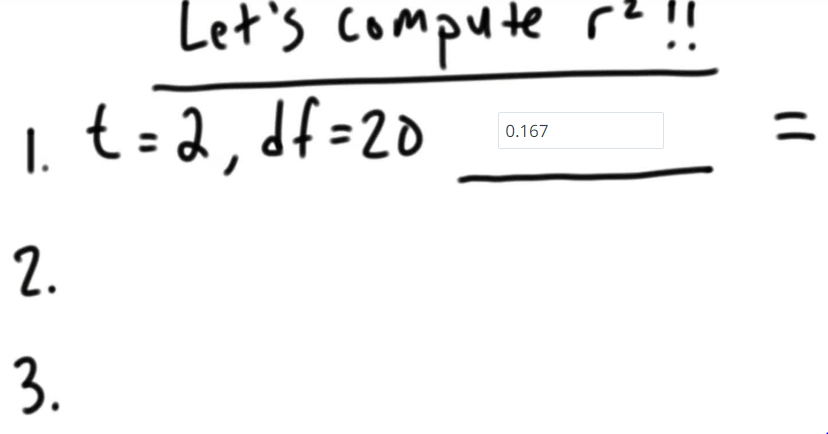 Let's compute r² !!
1. t = 2, df = 20 0.167 =
2.
3.